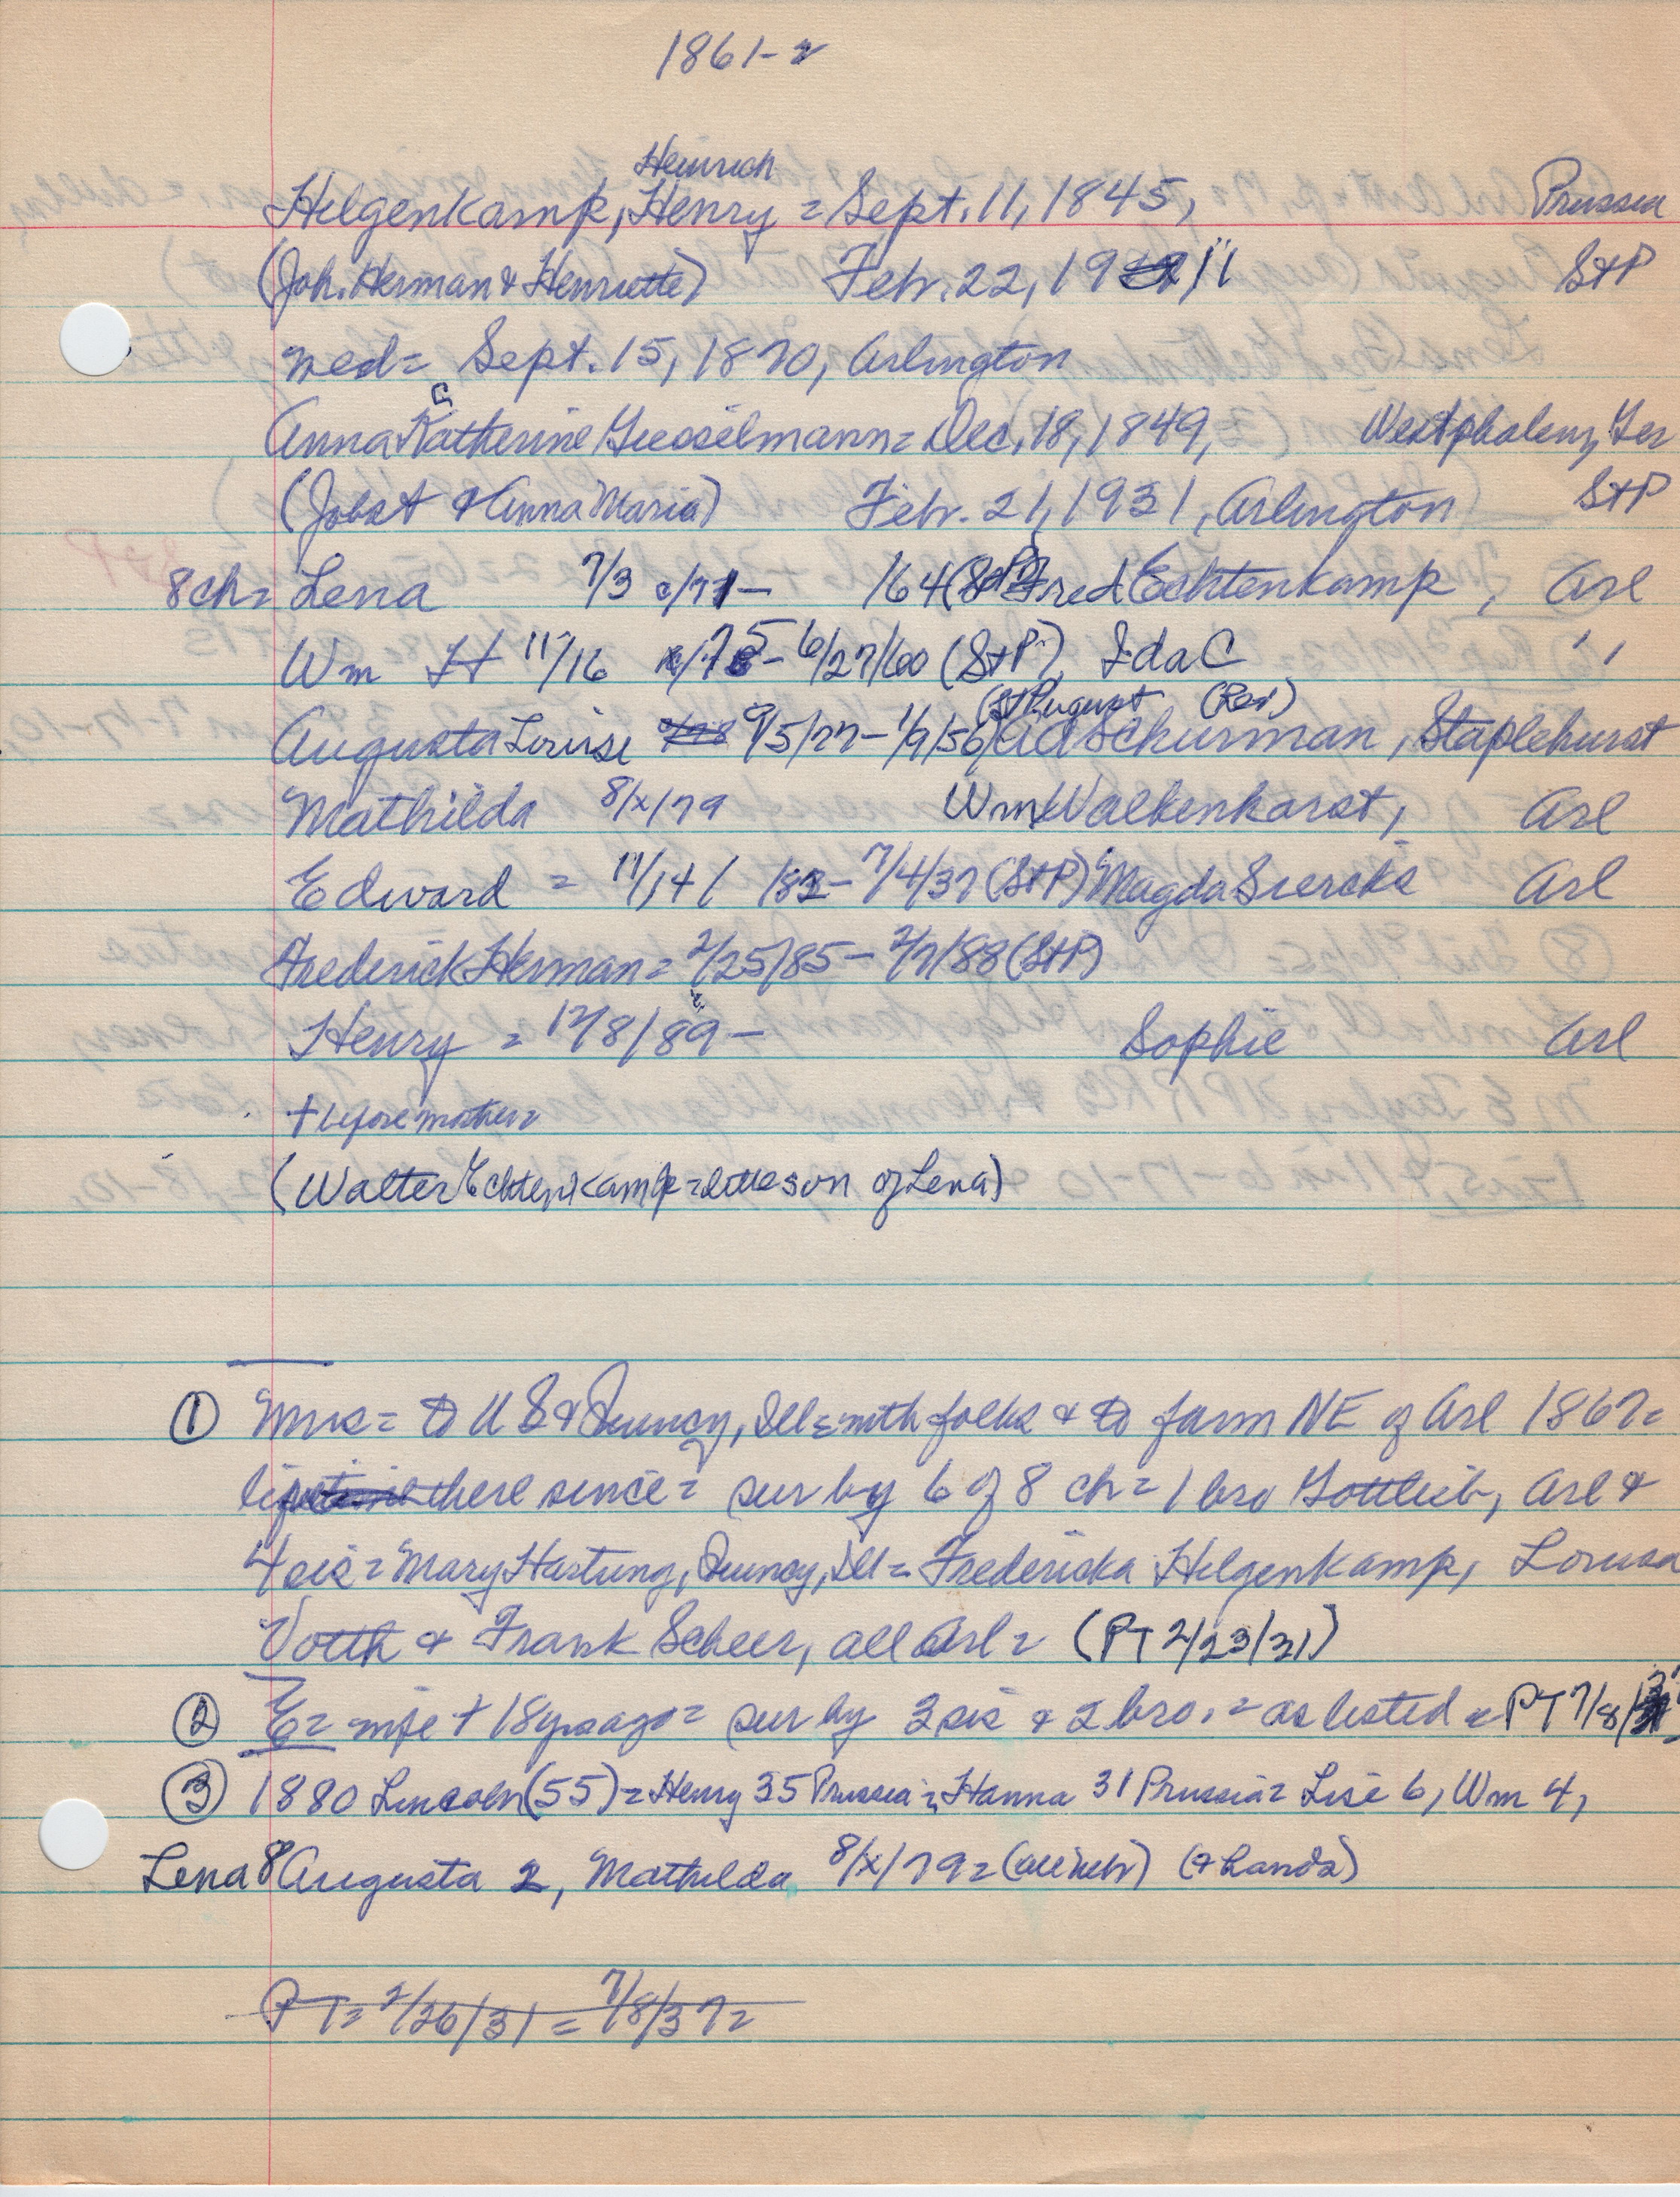 1861-2
Heinrich
Helgenkamp, Henry = Sept. 11, 1845, Prussia
(Joh. Herman & Henriette) Febr. 22, 1911 StP
wed = Sept. 15, 1870, Arlington
C
Anna Katherine Giesselmann = Dec. 18, 1849, Westphalen, Ger
(Jobst & Anna Maria) Febr. 21, 1931, Arlington StP
8 ch = Lena 7/3 c/71 - /64 (StP) Fred Echtenkamp, Arl
Wm H 11/16 /75 - 6/27/60 (StP), Ida C "
(StP) August (Rev)
Augusta Louise 9/5/77 - 1/9/56 Schurman, Staplehurst
Mathilda 8/x/79 Wm Walkenhorst, Arl
Edward = 11/14/ /82 - 7/4/37 (StP) Magda Siercks Arl
Frederick Herman = 2/25/85 - 2/7/88 (StP)
Henry = 12/8/89 - Sophie Arl
+ before mother =
(Walter Echtenkamp = son of Lena)
① Mrs = to U S & Quincy, Ill = with folks & to farm NE of Arl 1867 =
there since = sur by 6 of 8 ch = 1 bro Gottlieb, Arl &
4 sis = Mary Hartung, Quincy, Ill = Fredericka Helgenkamp, Louisa
Voth & Frank Scheer, all Arl = (PT 2/23/31)
② E = wife + 18 yrs ago = sur by 3 sis & 2 bro. = as listed = PT 7/8/37
③ 1880 Lincoln (55) = Henry 35 Prussia = Hanna 31 Prussia = Lise 6, Wm 4,
Lena 8 Augusta 2, Mathilda 8/x/79 = (all Nebr) (+ hands)
PT = 2/26/31 = 7/8/37 =